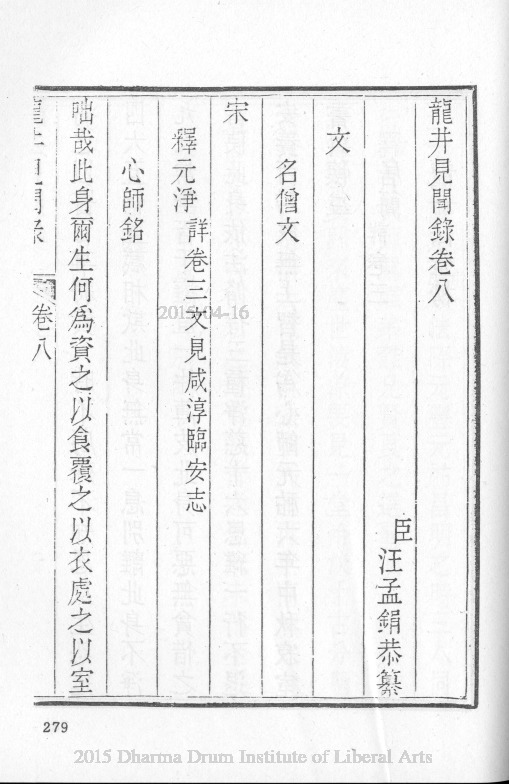 龍井見聞錄卷八
臣汪孟鋗恭纂
文
名僧文
宋
釋元淨 詳卷三文見咸淳臨安志
心師銘
咄哉此身爾生何爲資之以食覆之以衣處之以室
龍井見聞錄 卷八
2015-04-16
279
2015 Dharma Drum Institute of Liberal Arts